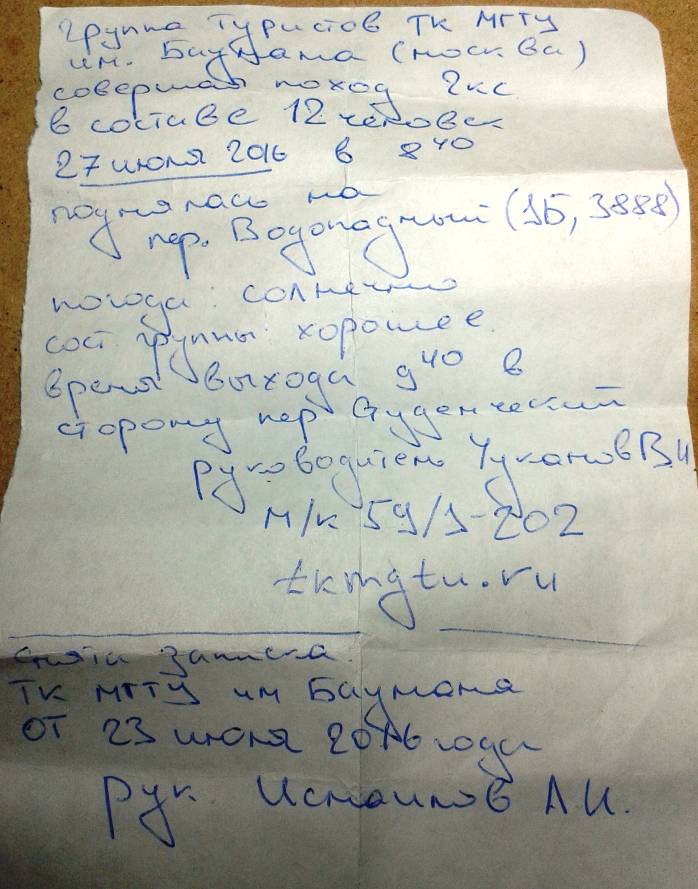 группа туристов ТК МГТУ
им. Баумана (москва)
совершая поход 2кс
в составе 12 человек
27 июля 2016 в 8⁴⁰
поднялась на
пер. Водопадный (1Б, 3888)
погода: солнечно
сост группы хорошее.
время выхода 9⁴⁰ в
сторону пер. Студенческий
руководитель Чуканов В И
м/к 59/1-202
tkmgtu.ru
Снята записка
ТК МГТУ им Баумана
от 23 июля 2016 года
рук. Исмаилов А И.